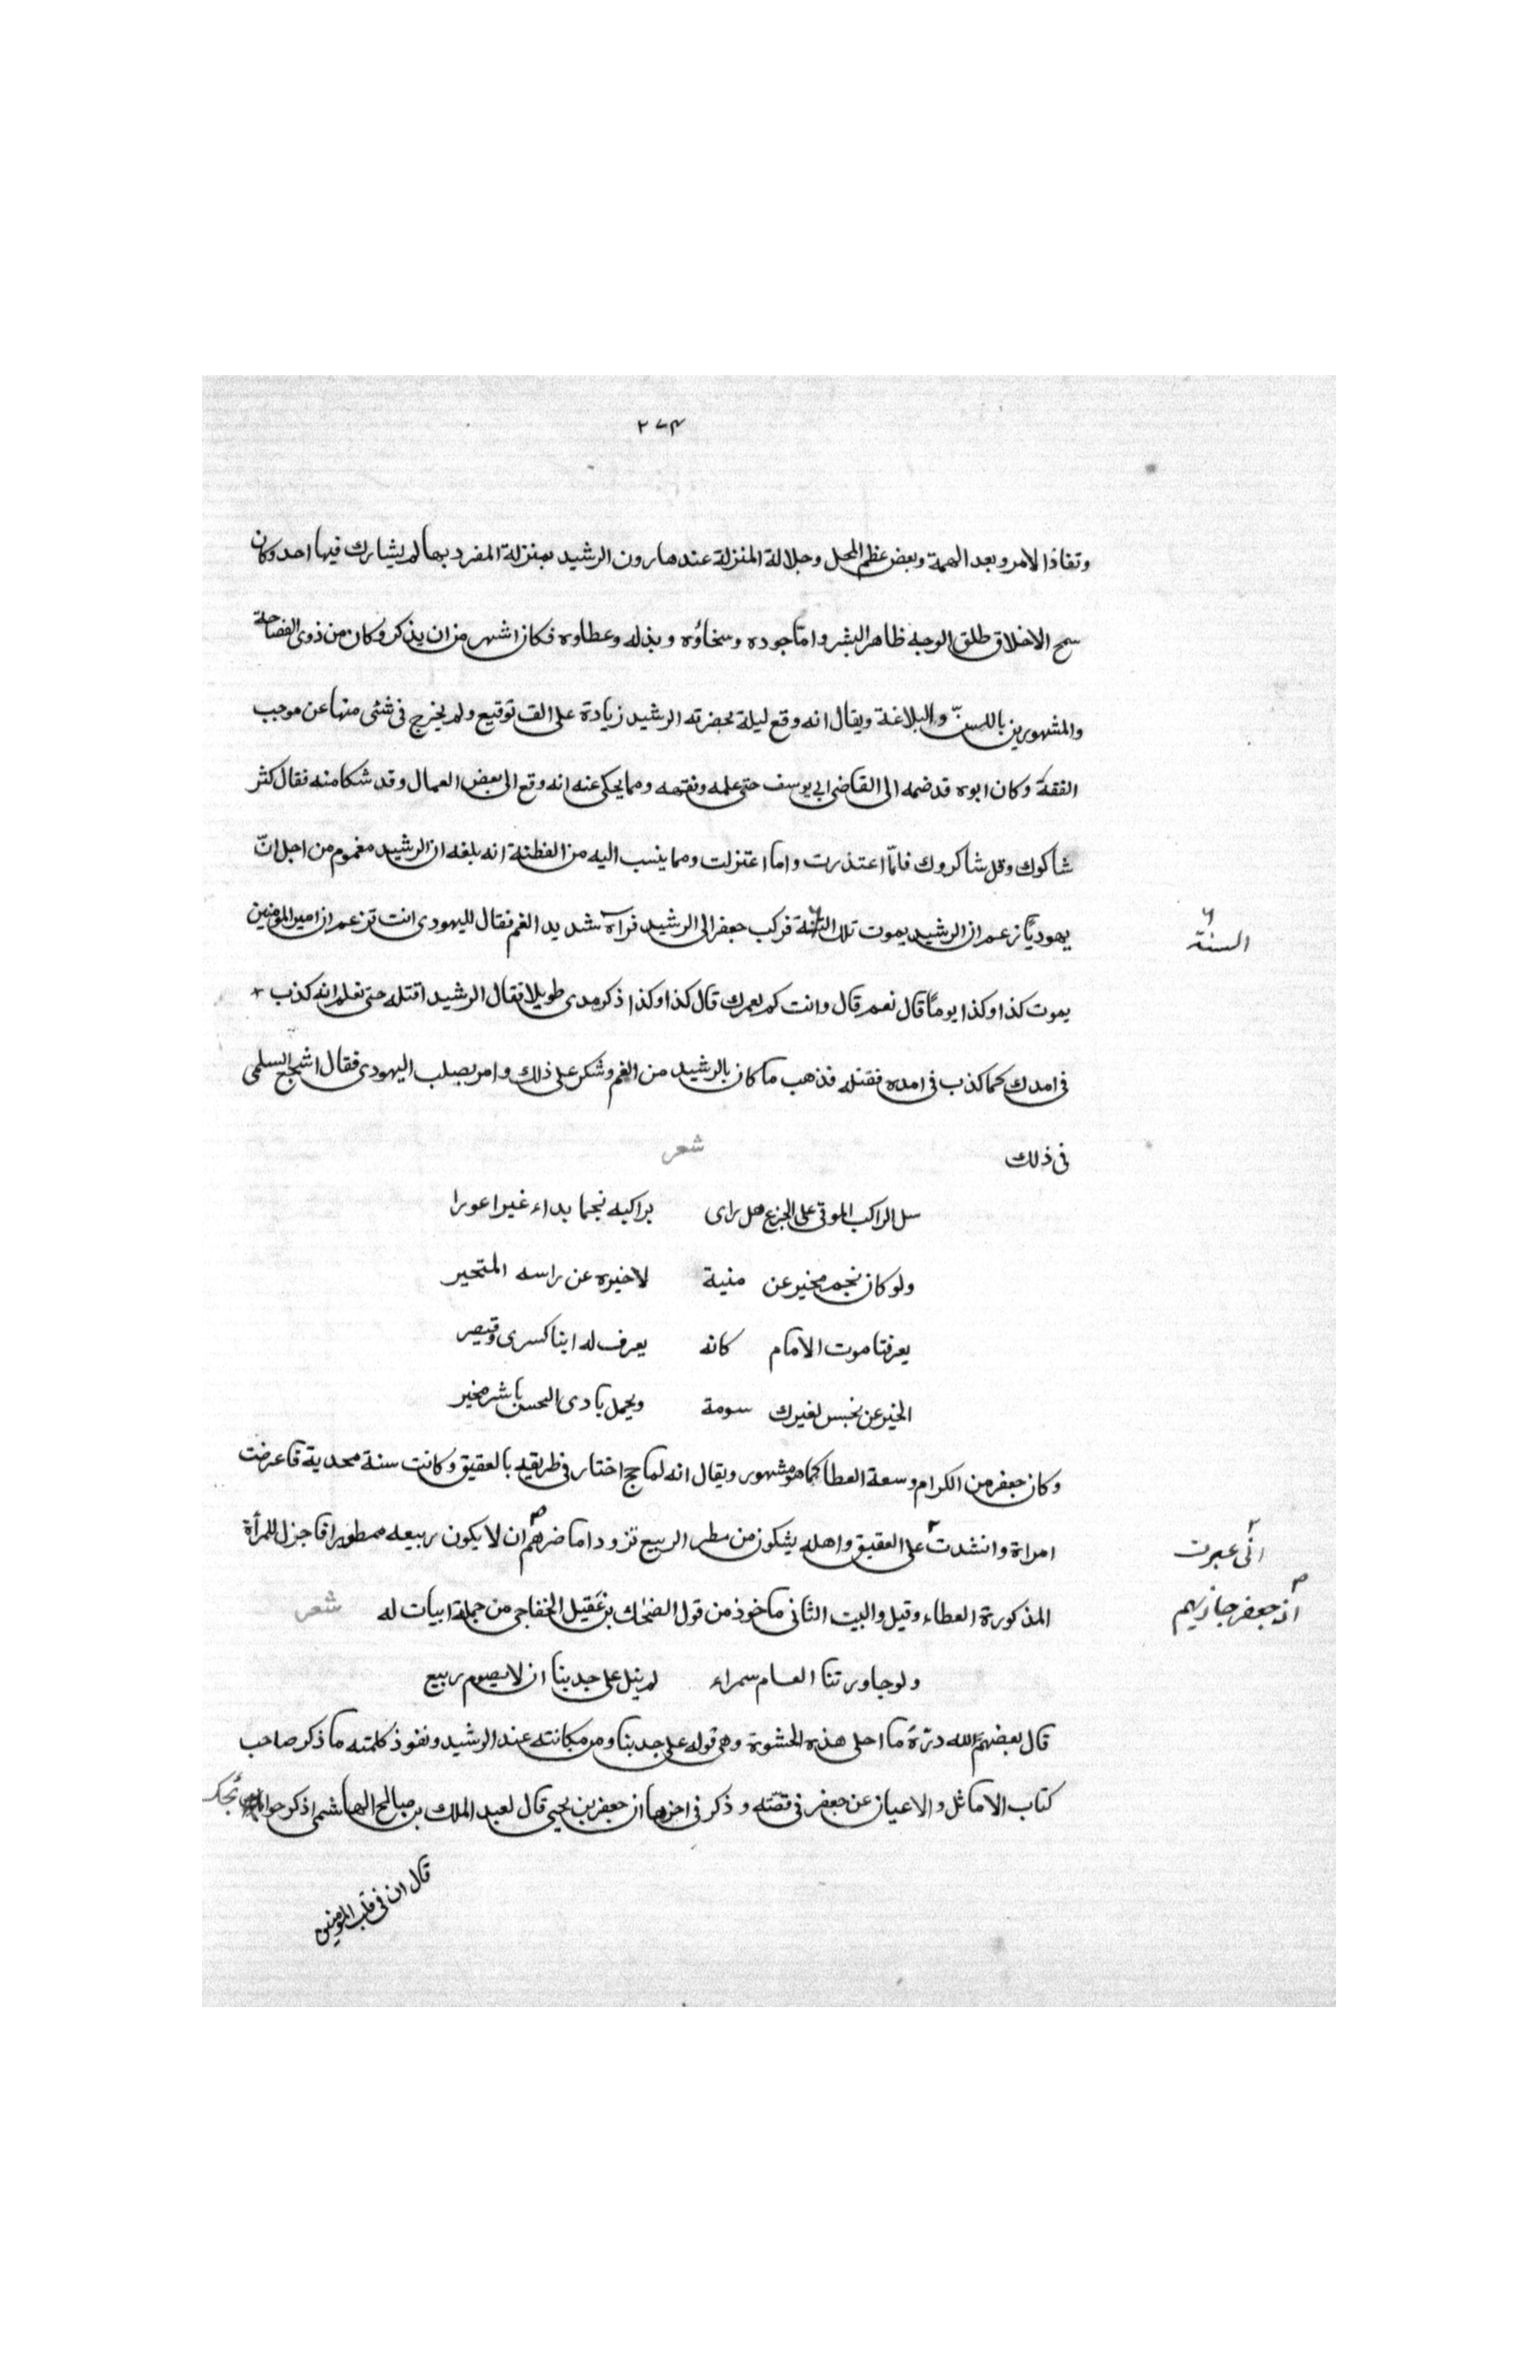 ٢٧٤
ونفاذ الامر وبعد الهمة وبعض عظم المحل وجلالة المنزلة عند هارون الرشيد بمنزلة المفرد بها لم يشارك فيها احد وكان
سمح الاخلاق طلق الوجه ظاهر البشر وامّا جوده وسخاؤه وبذله وعطاوه فكان اشهر من ان يذكر وكان من ذوى الفصاحة
والمشهورين باللسنّ والبلاغة ويقال انه وقع ليلة بحضرته الرشيد زيادة على الف توقيع ولم يخرج فى شئى منها عن موجب
الفقه وكان ابوه قد ضمه الى القاضى ابى يوسف حتى علمه وفقهه ومما يحكى عنه انه وقع الى بعض العمال وقد شكا منه فقال كثر
شاكوك وقل شاكروك فامّا اعتذرت واما اعتزلت ومما ينسب اليه من الفطنة انه بلغه ان الرشيد مغموم من اجل انّ
يهوديًا زعم ان الرشيد يموت تلك السنة فركب جعفر الى الرشيد فرآه شديد الغم فقال لليهودى انت تزعم ان امير المؤمنين
السنة
يموت كذا وكذا يومًا قال نعم قال وانت كم عمرك قال كذا وكذا ذكر مدى طويلا فقال الرشيد اقتله حتى تعلم انه كذب
فى امدك كما كذب فى امده فقتله فذهب ما كان بالرشيد من الغم وشكر على ذلك وامر بصلب اليهودى فقال اشجع السلمى
فى ذلك شعر
سل الراكب الموقى على الجزع هل راى براكبه نجما بداء غير اعورا
ولو كان نجم مخبر عن منية لاخبره عن راسه المتحير
يعرفنا موت الامام كانه يعرف له ابنا كسرى وقيصر
الخبر عن نحبس لغيرك سومة ويحمل بادى النحس يا شر مخبر
وكان جعفر من الكرام وسعة العطا كما هو مشهور ويقال انه لما حج اختار فى طريقه بالعقيق وكانت سنة محدية فاعرضت
امراة وانشدت على العقيق واهله يشكون من مطر الربيع نزود اما ضرهم ان لا يكون ربيعه ممطورا فاجزل للمرأة
انّى عبرت
المذكورة العطاء وقيل والبيت الثانى ماخوذ من قول الضحاك بن عقيل الخفاجى من جملة ابيات له شعر
اذ جعفر جاز بهم
ولو جاورتنا العام سمراء لم ينل على جدبنا ان لا يصوم ربيع
قال بعضهم لله درّه ما احلى هذه الحشوة وهى قوله على جدبنا ومن مكانته عند الرشيد ونفوذ كلمته ما ذكر صاحب
كتاب الاماثل والاعيان عن جعفر فى قصّته وذكر فى اخرها ان جعفر بن يحيى قال لعبد الملك بن صالح الهاشمى اذكر
قال ان فى قلب المؤمنين